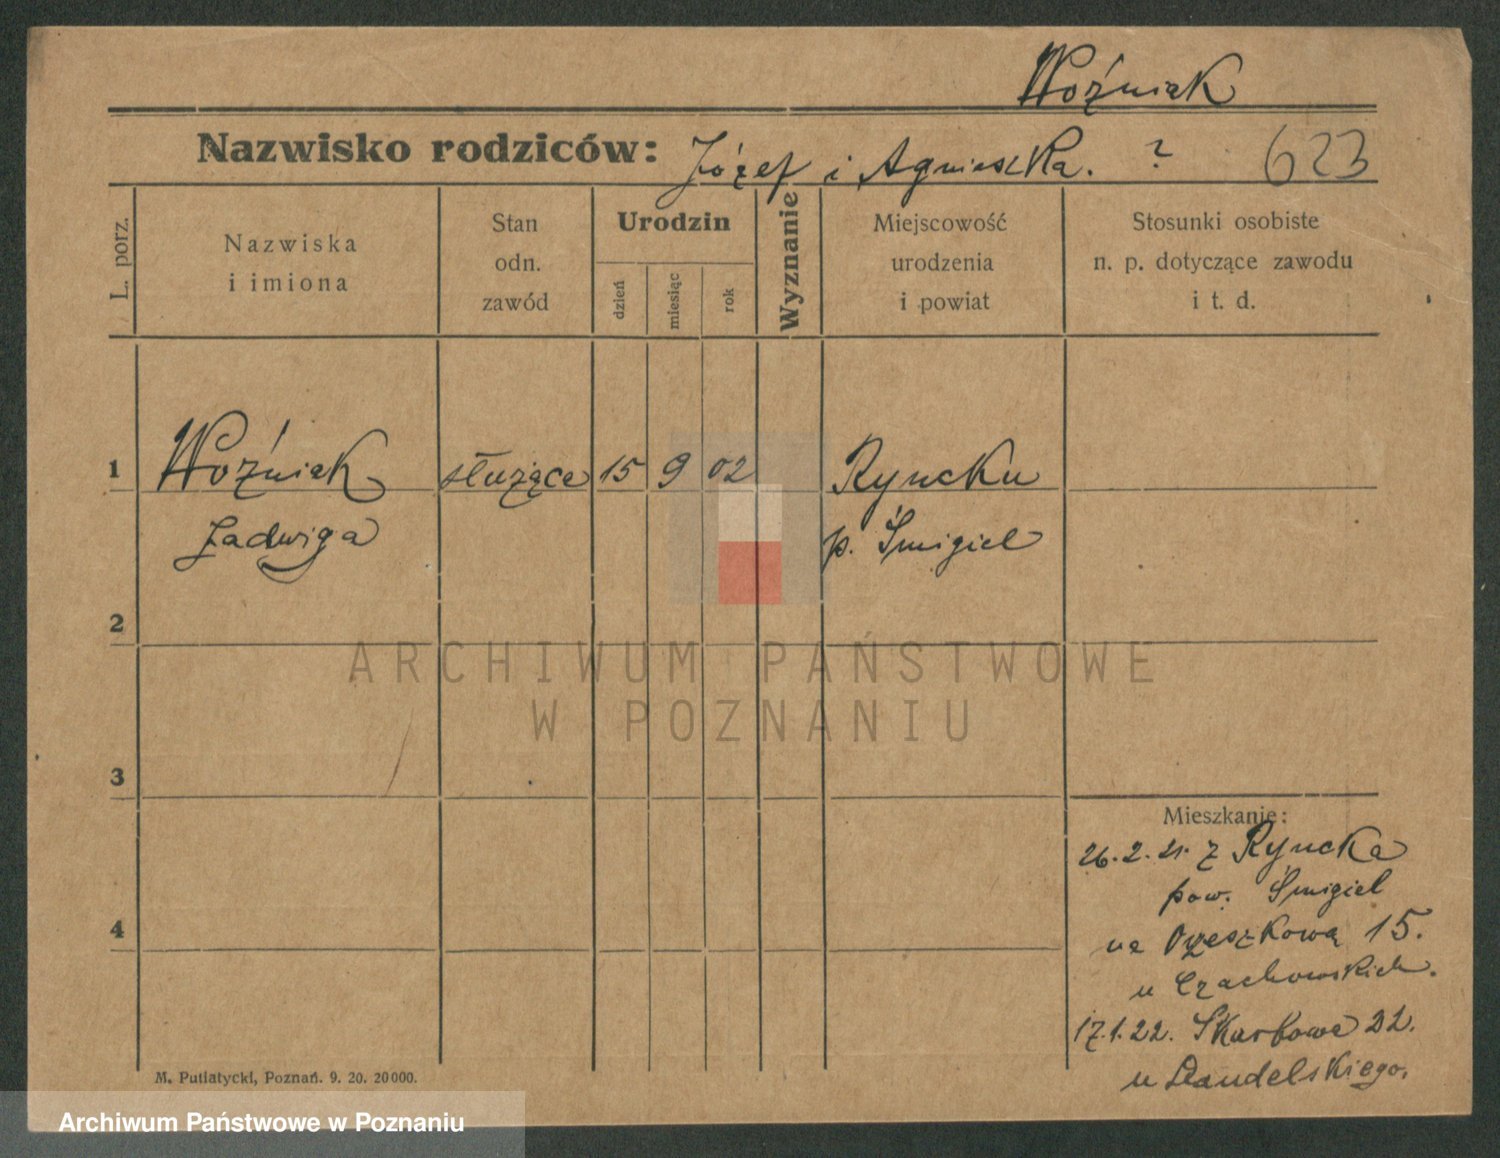 Woźniak
Nazwisko rodziców: Józef i Agnieszka. ? 623
L. porz.
Nazwiska
i imiona
Stan
odn.
zawód
Urodzin
dzień
miesiąc
rok
Wyznanie
Miejscowość
urodzenia
i powiat
Stosunki osobiste
n. p. dotyczące zawodu
i t. d.
1 Woźniak służąca 15 9 02 Ryncku
Jadwiga p. Śmigiel
2
3
4
Mieszkanie:
26.2.21. z Ryncka
pow. Śmigiel
na Orzeszkową 15.
u Czachowskich.
17.1.22. Skarbowa 22.
u Dandelskiego.
M. Putiatycki, Poznań. 9. 20. 20000.
ARCHIWUM PAŃSTWOWE
W POZNANIU
Archiwum Państwowe w Poznaniu